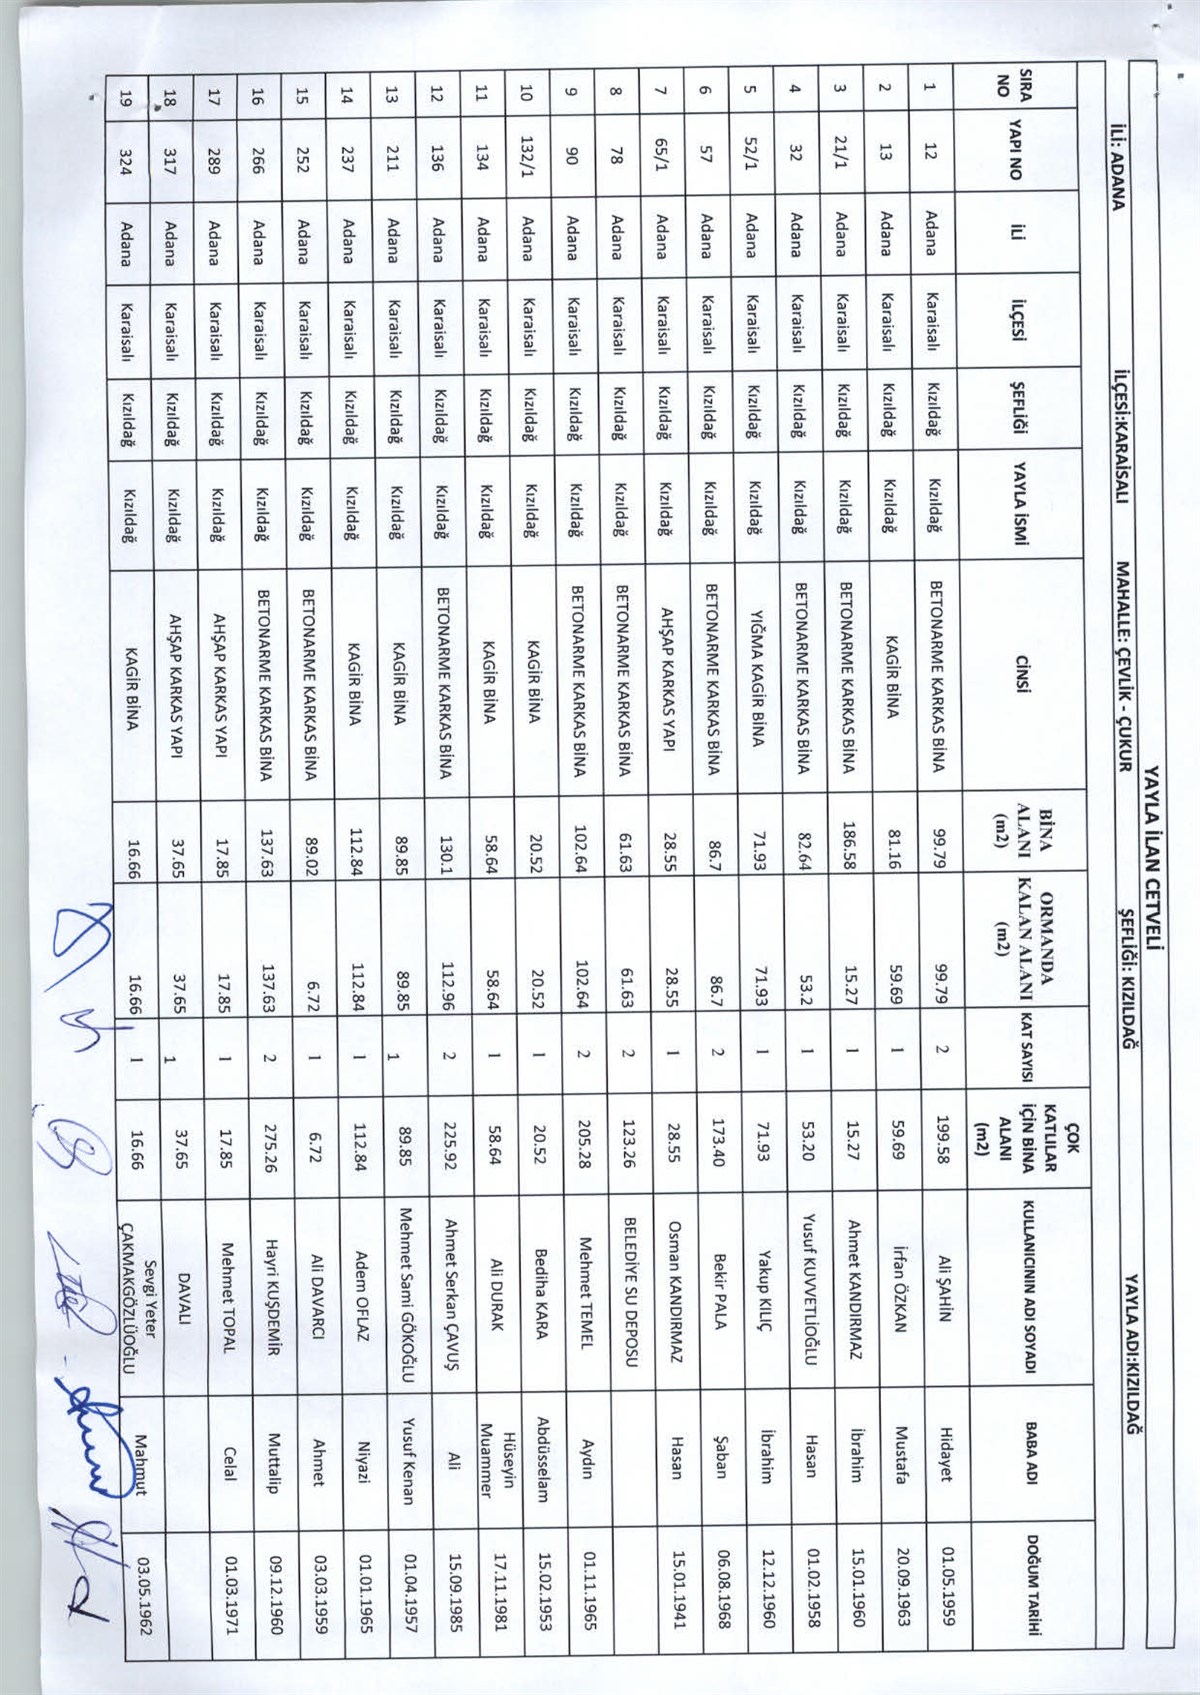 YAYLA İLAN CETVELİ
İLİ: ADANA İLÇESİ:KARAİSALI MAHALLE: ÇEVLİK - ÇUKUR ŞEFLİĞİ: KIZILDAĞ YAYLA ADI:KIZILDAĞ
SIRA NO YAPI NO İLİ İLÇESİ ŞEFLİĞİ YAYLA İSMİ CİNSİ BİNA ALANI (m2) ORMANDA KALAN ALANI (m2) KAT SAYISI ÇOK KATLILAR İÇİN BİNA ALANI (m2) KULLANICININ ADI SOYADI BABA ADI DOĞUM TARİHİ
1 12 Adana Karaisalı Kızıldağ Kızıldağ BETONARME KARKAS BİNA 99.79 99.79 2 199.58 Ali ŞAHİN Hidayet 01.05.1959
2 13 Adana Karaisalı Kızıldağ Kızıldağ KAGİR BİNA 81.16 59.69 1 59.69 İrfan ÖZKAN Mustafa 20.09.1963
3 21/1 Adana Karaisalı Kızıldağ Kızıldağ BETONARME KARKAS BİNA 186.58 15.27 1 15.27 Ahmet KANDIRMAZ İbrahim 15.01.1960
4 32 Adana Karaisalı Kızıldağ Kızıldağ BETONARME KARKAS BİNA 82.64 53.2 1 53.20 Yusuf KUVVETLİOĞLU Hasan 01.02.1958
5 52/1 Adana Karaisalı Kızıldağ Kızıldağ YIĞMA KAGİR BİNA 71.93 71.93 1 71.93 Yakup KILIÇ İbrahim 12.12.1960
6 57 Adana Karaisalı Kızıldağ Kızıldağ BETONARME KARKAS BİNA 86.7 86.7 2 173.40 Bekir PALA Şaban 06.08.1968
7 65/1 Adana Karaisalı Kızıldağ Kızıldağ AHŞAP KARKAS YAPI 28.55 28.55 1 28.55 Osman KANDIRMAZ Hasan 15.01.1941
8 78 Adana Karaisalı Kızıldağ Kızıldağ BETONARME KARKAS BİNA 61.63 61.63 2 123.26 BELEDİYE SU DEPOSU
9 90 Adana Karaisalı Kızıldağ Kızıldağ BETONARME KARKAS BİNA 102.64 102.64 2 205.28 Mehmet TEMEL Aydın 01.11.1965
10 132/1 Adana Karaisalı Kızıldağ Kızıldağ KAGİR BİNA 20.52 20.52 1 20.52 Bediha KARA Abdüsselam 15.02.1953
11 134 Adana Karaisalı Kızıldağ Kızıldağ KAGİR BİNA 58.64 58.64 1 58.64 Ali DURAK Hüseyin Muammer 17.11.1981
12 136 Adana Karaisalı Kızıldağ Kızıldağ BETONARME KARKAS BİNA 130.1 112.96 2 225.92 Ahmet Serkan ÇAVUŞ Ali 15.09.1985
13 211 Adana Karaisalı Kızıldağ Kızıldağ KAGİR BİNA 89.85 89.85 1 89.85 Mehmet Sami GÖKOĞLU Yusuf Kenan 01.04.1957
14 237 Adana Karaisalı Kızıldağ Kızıldağ KAGİR BİNA 112.84 112.84 1 112.84 Adem OFLAZ Niyazi 01.01.1965
15 252 Adana Karaisalı Kızıldağ Kızıldağ BETONARME KARKAS BİNA 89.02 6.72 1 6.72 Ali DAVARCI Ahmet 03.03.1959
16 266 Adana Karaisalı Kızıldağ Kızıldağ BETONARME KARKAS BİNA 137.63 137.63 2 275.26 Hayri KUŞDEMİR Muttalip 09.12.1960
17 289 Adana Karaisalı Kızıldağ Kızıldağ AHŞAP KARKAS YAPI 17.85 17.85 1 17.85 Mehmet TOPAL Celal 01.03.1971
18 317 Adana Karaisalı Kızıldağ Kızıldağ AHŞAP KARKAS YAPI 37.65 37.65 1 37.65 DAVALI
19 324 Adana Karaisalı Kızıldağ Kızıldağ KAGİR BİNA 16.66 16.66 1 16.66 Sevgi Yeter ÇAKMAKGÖZLÜOĞLU Mahmut 03.05.1962